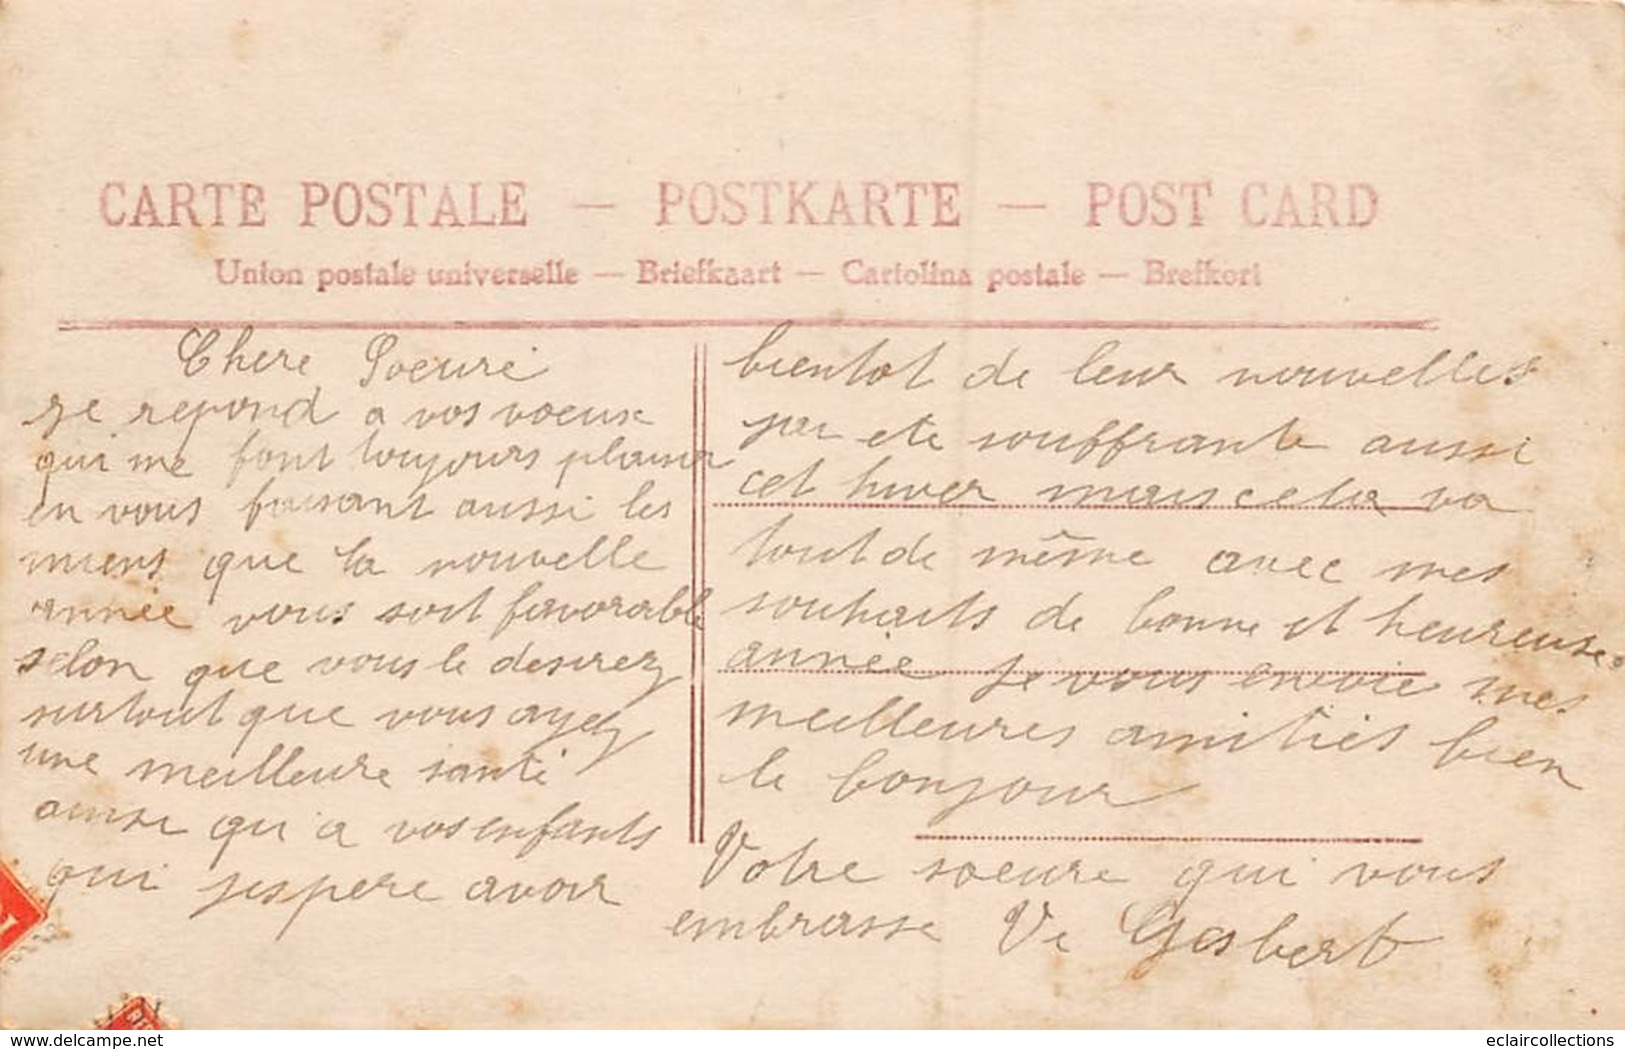 CARTE POSTALE — POSTKARTE — POST CARD
Union postale universelle — Briefkaart — Cartolina postale — Brefkort
Chere Soeure
je repond a vos voeux
qui me font toujours plaisir
en vous faisant aussi les
miens que la nouvelle
année vous soit favorable
selon que vous le desirez
surtout que vous ayez
une meilleure santé
ainsi qu'a vos enfants
qui jespere avoir
bientot de leur nouvelles
jai ete souffrante aussi
cet hiver mais cela va
tout de même avec mes
souhaits de bonne et heureuse
année je vous envoie mes
meilleures amitiés bien
le bonjour
Votre soeure qui vous
embrasse Ve Gesbert
delcampe.net
eclaircollections